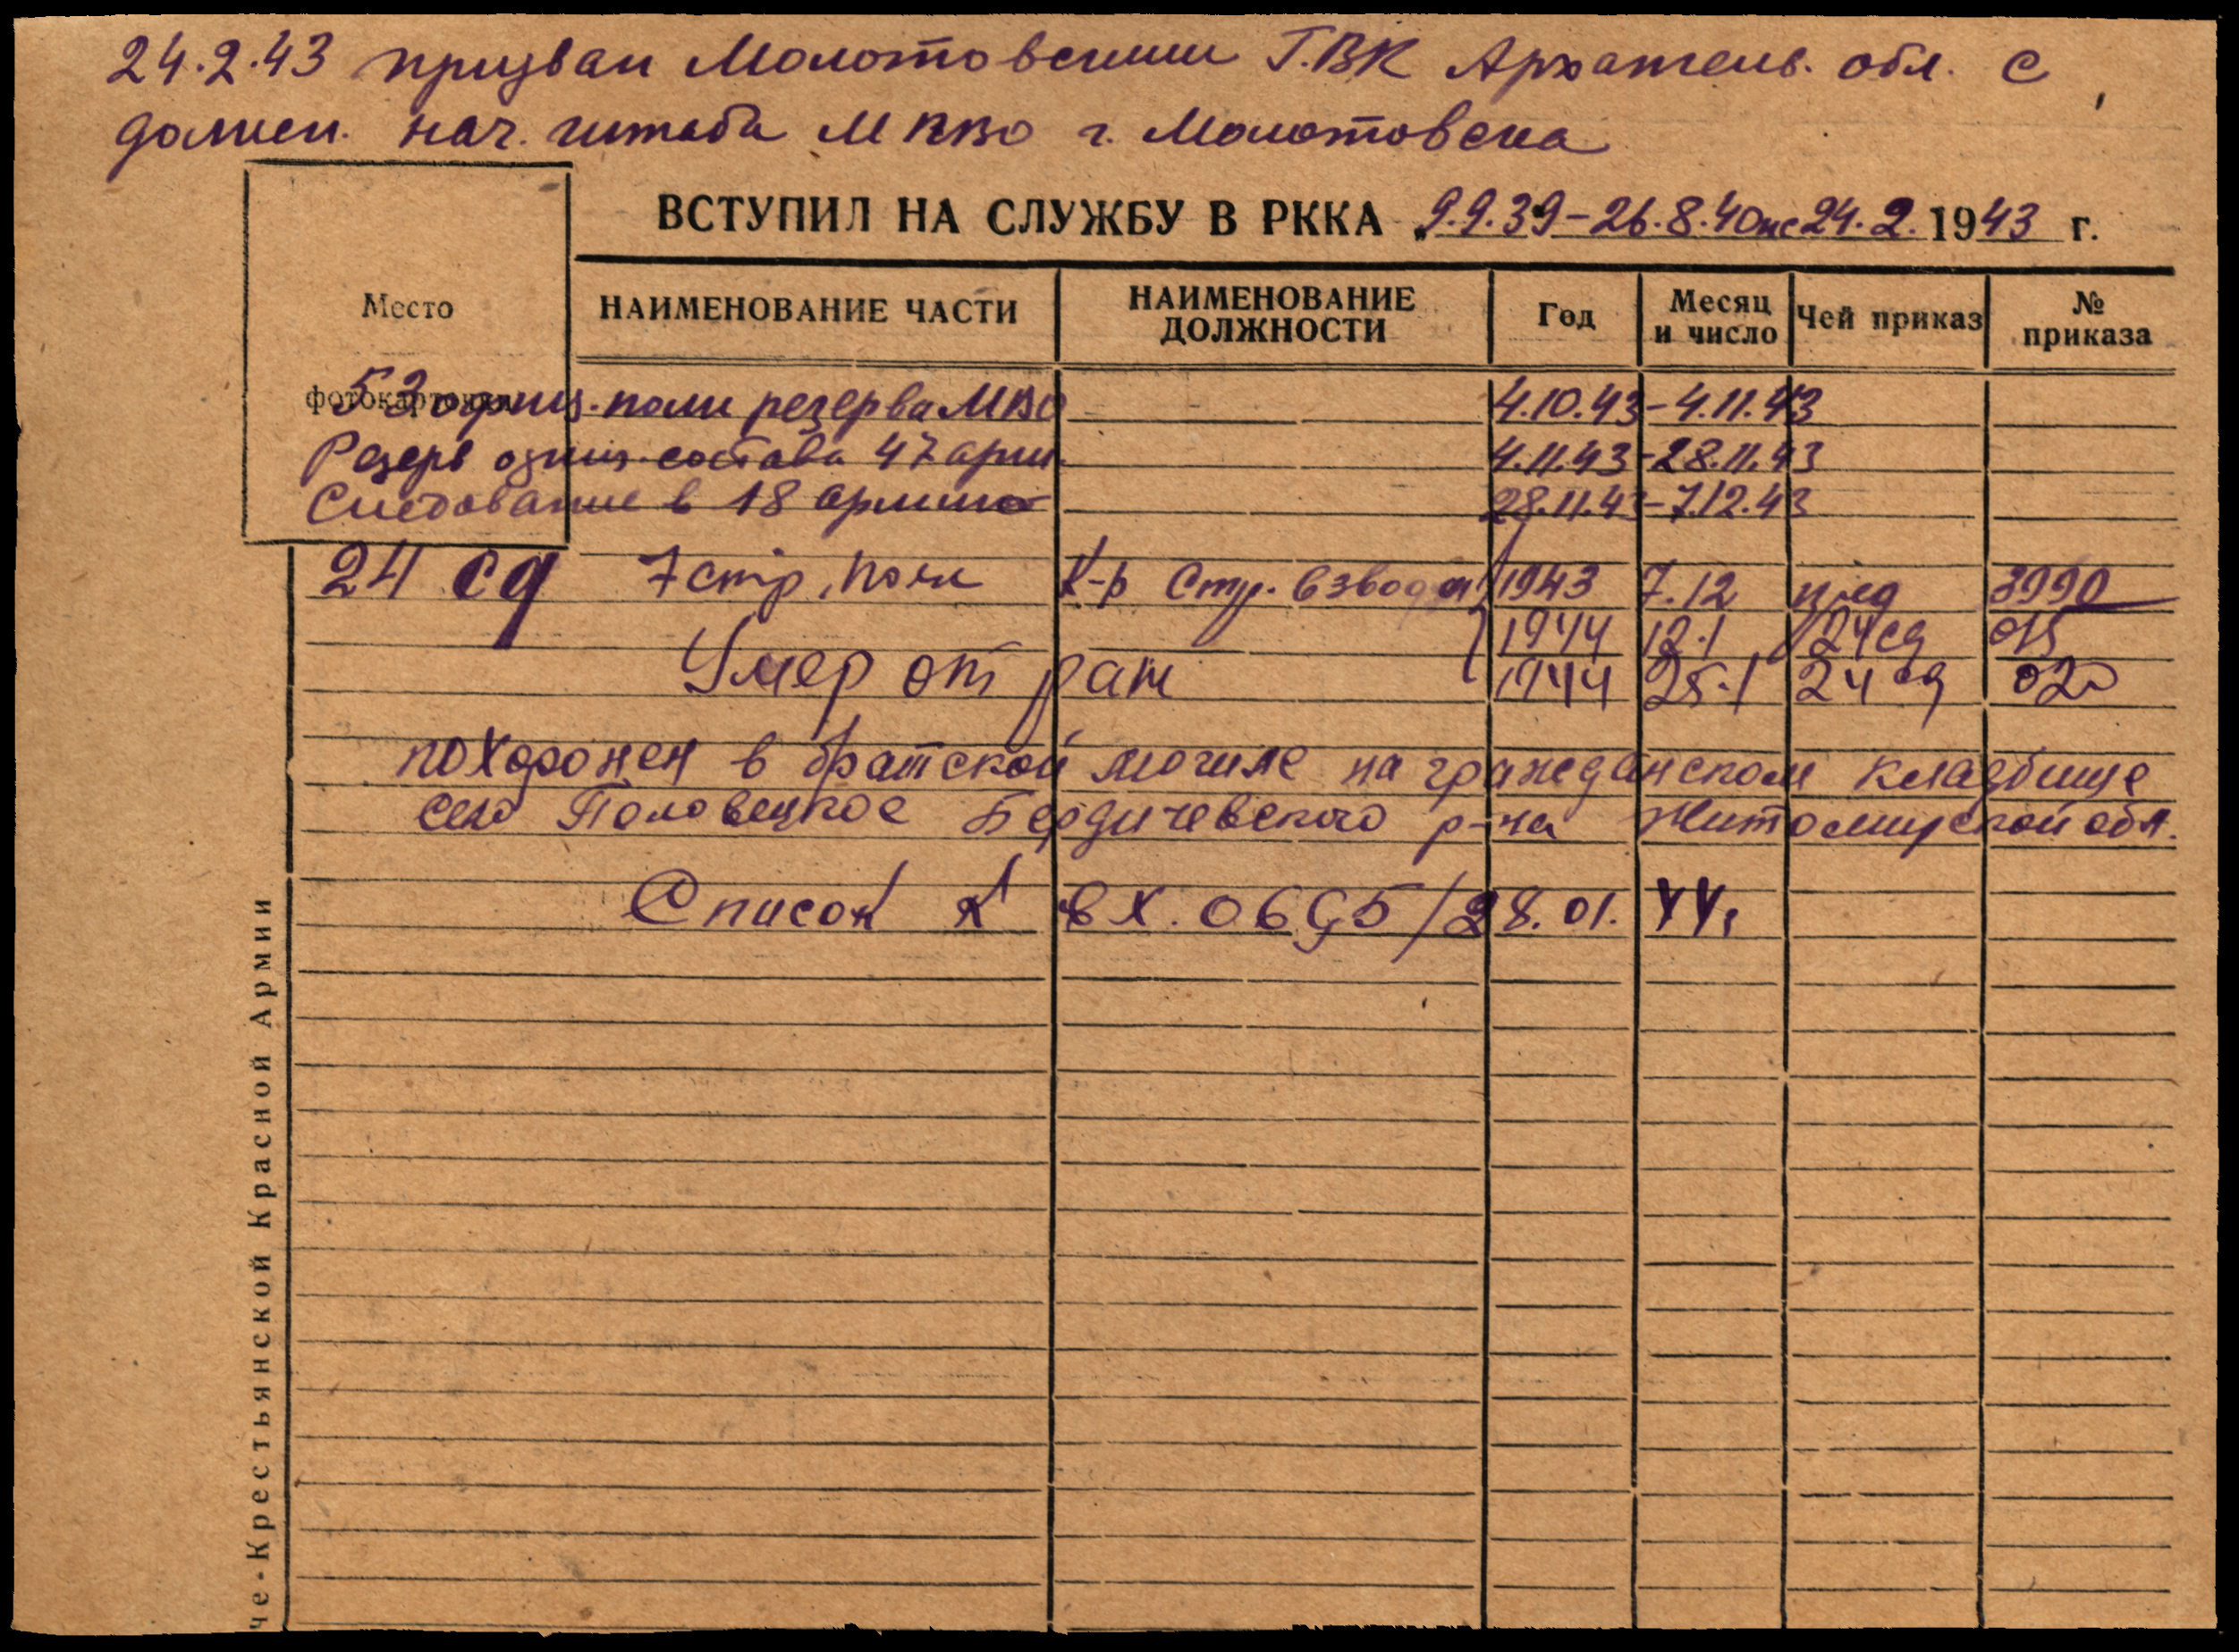 24.2.43 призван Молотовским Г.ВК Архангельв. обл. с
должн. нач. штаба МПВО г. Молотовска
ВСТУПИЛ НА СЛУЖБУ В РККА 9.9.39-26.8.40 и с 24.2. 1943 г.
Место фотокарточки
НАИМЕНОВАНИЕ ЧАСТИ НАИМЕНОВАНИЕ ДОЛЖНОСТИ Год Месяц и число Чей приказ № приказа
53 офиц. полк резерва МВО 4.10.43-4.11.43
Резерв офиц. состава 47 арм. 4.11.43-28.11.43
Следование в 18 армию 28.11.43-7.12.43
24 сд 7 стр. полк К-р Стр. взвода 1943 7.12 3990
1944 12.1 24 сд
Умер от ран 1944 25.1 24 сд 020
похоронен в братской могиле на гражданском кладбище
село Половецкое Бердичевского р-на Житомирской обл.
Список к вх. 0695/28.01. 44г
че-Крестьянской Красной Армии